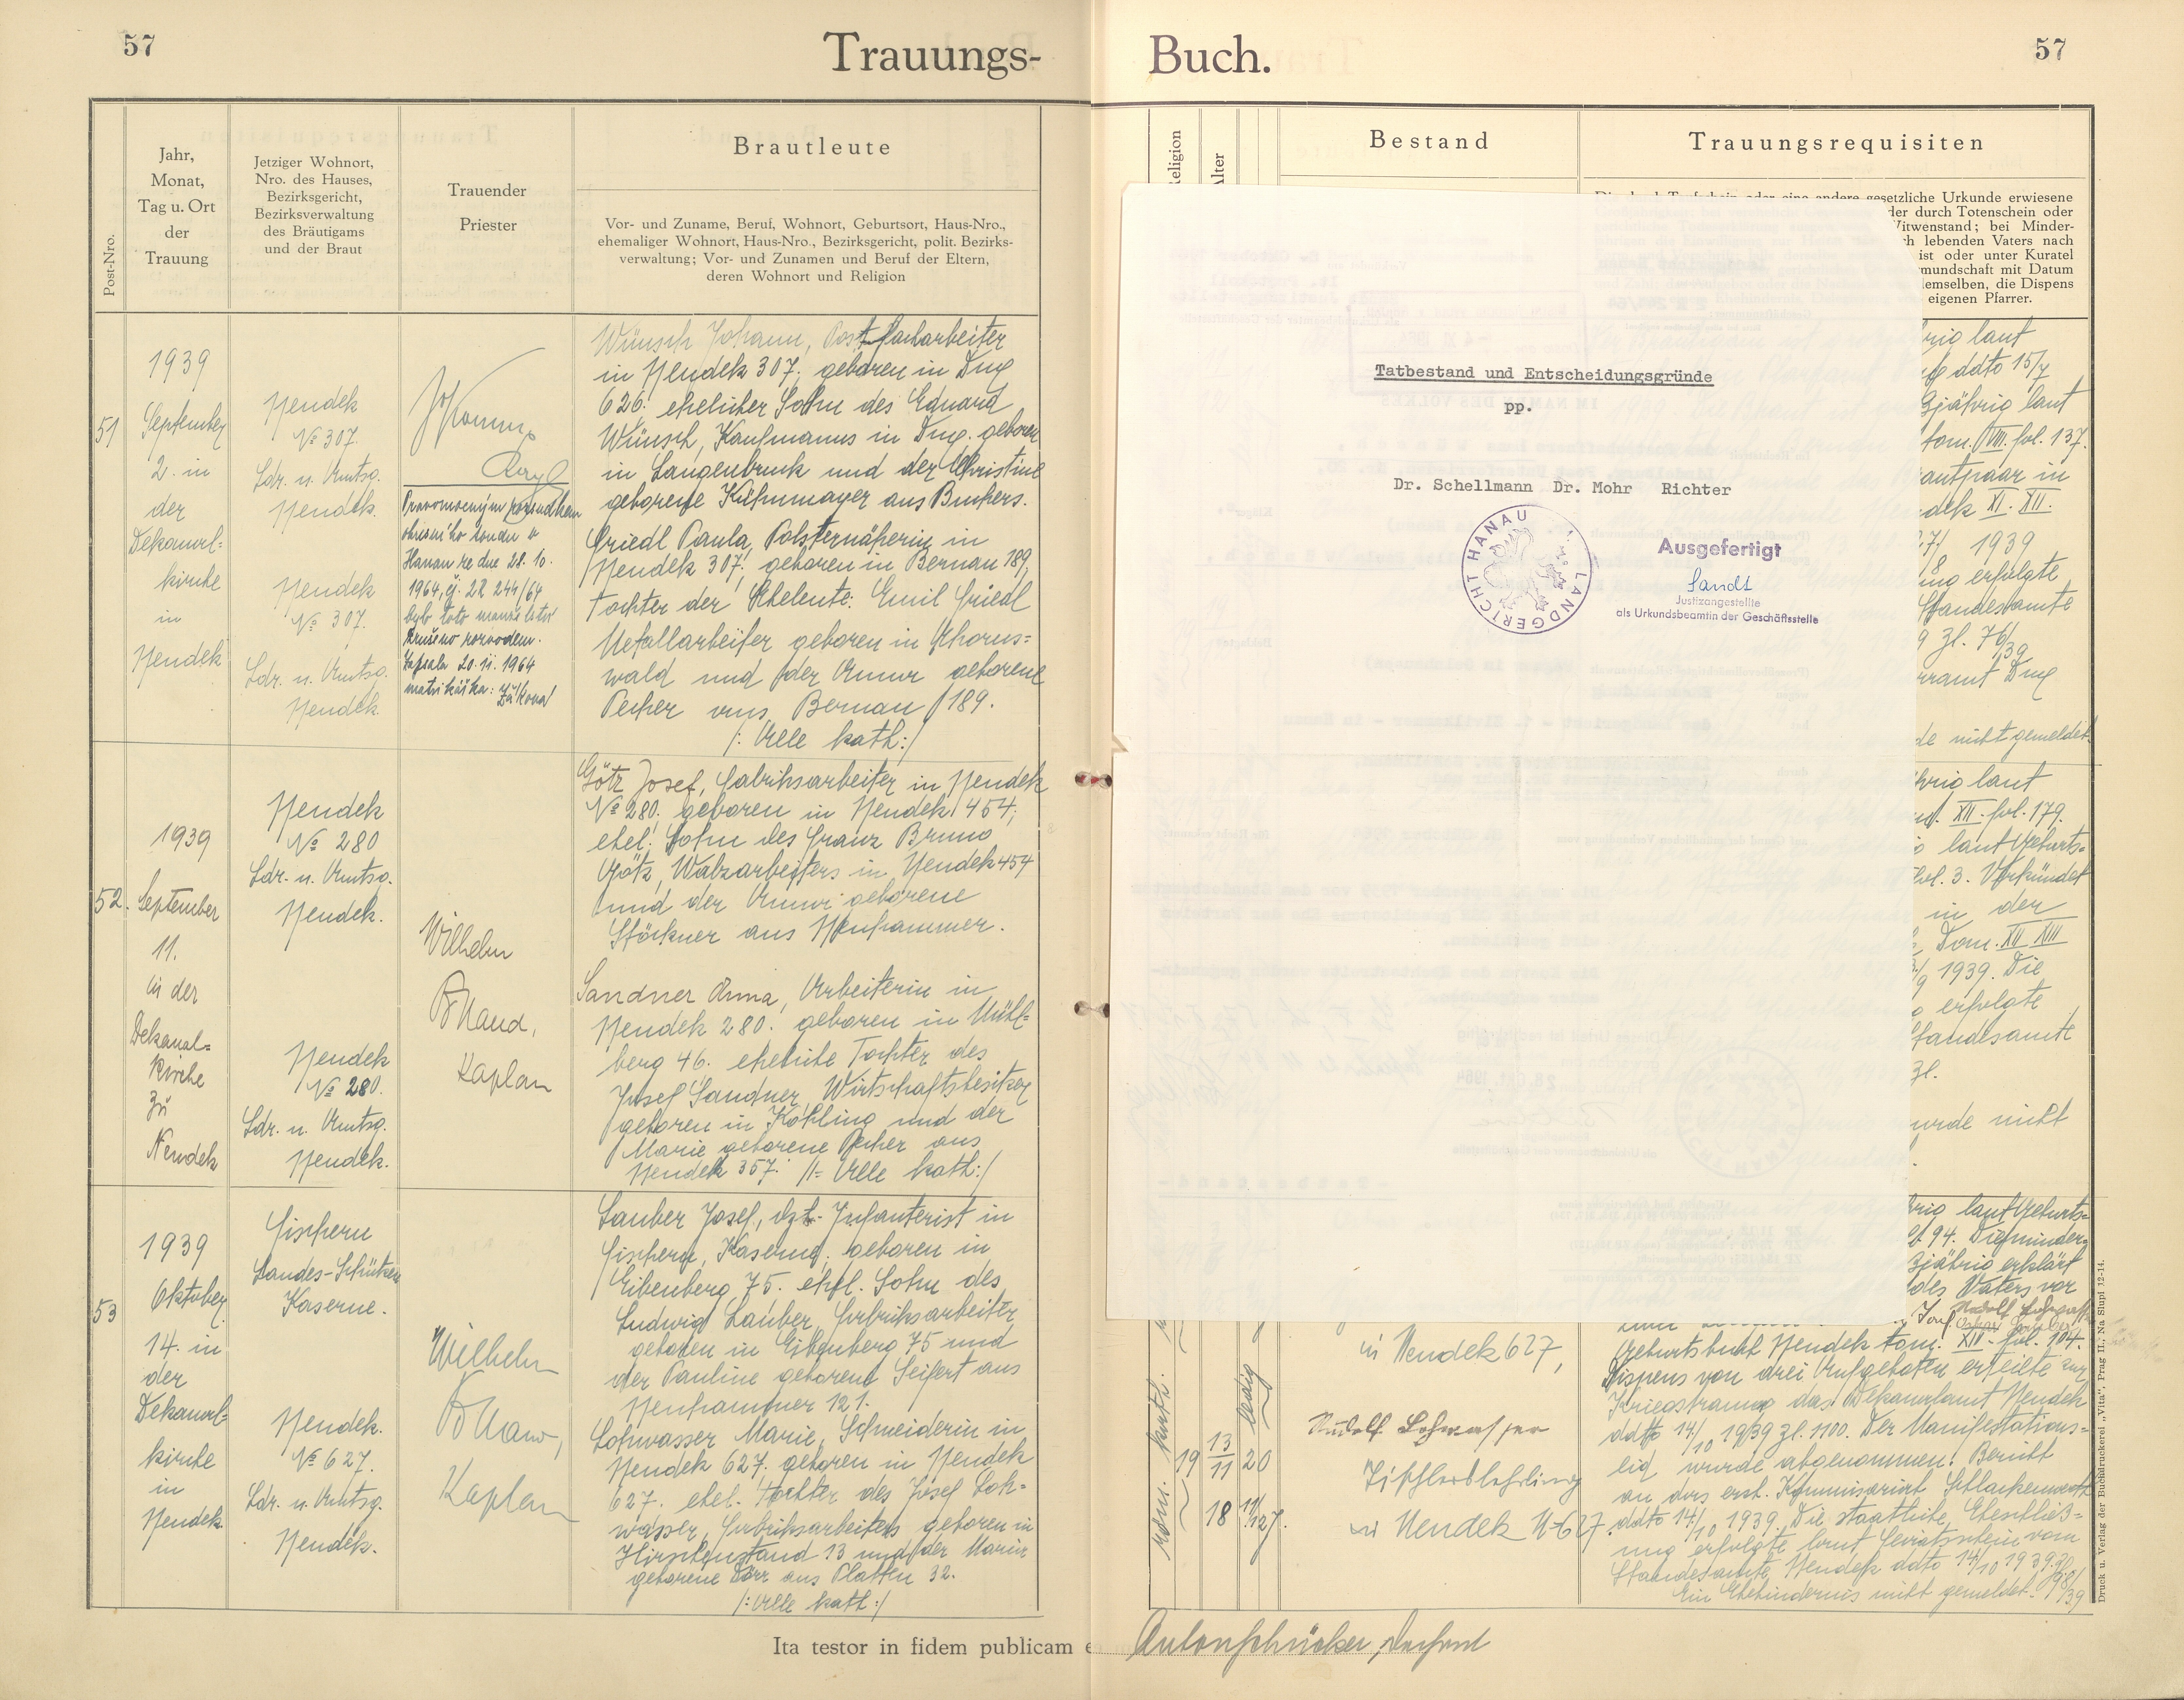 57
Trauungs-
Buch.
57
Post-Nro.
Jahr,
Monat,
Tag u. Ort
der
Trauung
Jetziger Wohnort,
Nro. des Hauses,
Bezirksgericht,
Bezirksverwaltung
des Bräutigams
und der Braut
Trauender
Priester
Brautleute
Vor- und Zuname, Beruf, Wohnort, Geburtsort, Haus-Nro.,
ehemaliger Wohnort, Haus-Nro., Bezirksgericht, polit. Bezirks-
verwaltung; Vor- und Zunamen und Beruf der Eltern,
deren Wohnort und Religion
51
1939
September
2. in
der
Dekanal=
kirche
in
Neudek
Neudek
№ 307.
Ldr. u. Amtsg.
Neudek.
Neudek
№ 307.
Ldr. u. Amtsg.
Neudek.
Hanau ze dne 28. 10.
1964, č. 2R 244/64
bylo toto manželství
zrušeno rozvodem.
Zapsala 20. 11. 1964
matrikářka:
Wünsch Johann, Postfacharbeiter
in Neudek 307. geboren in Dux
626. ehelicher Sohn des Eduard
Wünsch, Kaufmanns in Dux. geboren
in Langenbruck und der Christine
geborene Kühnmayer aus Bunkers.
Friedl Paula, Polsternäherin in
Neudek 307. geboren in Bernau 189,
Tochter der Eheleute: Emil Friedl
Metallarbeiter geboren in Ahorns=
wald und der Anna geborene
Pecher aus Bernau 189.
/: Alle kath:/
52.
1939
September
11.
in der
Dekanal=
kirche
zu
Neudek
Neudek
№ 280
Ldr. u. Amtsg.
Neudek.
Neudek
№ 280.
Ldr. u. Amtsg.
Neudek.
Wilhelm
Kaplan
Götz Josef, Fabriksarbeiter in Neudek
№ 280. geboren in Neudek 454;
ehel. Sohn des Franz Bruno
Götz, Walzarbeiters in Neudek 454
und der Anna geborene
Störkner aus Neuhammer.
Sandner Anna, Arbeiterin in
Neudek 280. geboren in Mühl=
berg 46. eheliche Tochter des
Josef Sandner, Wirtschaftsbesitzer
geboren in Kohling und der
Marie geborene Pecher aus
Neudek 357. /: Alle kath:/
53
1939
Oktober
14. in
der
Dekanal=
kirche
in
Neudek.
Fischern
Landes-Schützen
Kaserne.
Neudek.
№ 627.
Ldr. u. Amtsg.
Neudek.
Wilhelm
Kaplan
Lauber Josef, dzt. Infanterist in
Fischern, Kaserne; geboren in
Eibenberg 75. ehel. Sohn des
Ludwig Lauber, Fabriksarbeiter
geboren in Eibenberg 75 und
der Pauline geborene Seifert aus
Neuhammer 121.
Lohwasser Marie, Schneiderin in
Neudek 627. geboren in Neudek
627. ehel. Tochter des Josef Loh=
wasser, Fabriksarbeiters geboren in
Hirschenstand 13 und der Marie
geborene Dörr aus Platten 32.
/: Alle kath:/
Ita testor in fidem publicam
eligion
lter
Bestand
Trauungsrequisiten
gesetzliche Urkunde erwiesene
der durch Totenschein oder
Witwenstand; bei Minder-
lebenden Vaters nach
ist oder unter Kuratel
mundschaft mit Datum
emselben, die Dispens
eigenen Pfarrer.
Tatbestand und Entscheidungsgründe
pp.
Dr. Schellmann Dr. Mohr Richter
LANDGERICHT HANAU
Ausgefertigt
Sandt
Justizangestellte
als Urkundsbeamtin der Geschäftsstelle
laut
ddto 15/7
jährig laut
tom. VIII. fol. 137.
in
XI. XII.
1939
erfolgte
Standesamte
Zl. 76/39
Dux
nicht gemeldet.
laut
XII. fol. 179.
laut Geburts=
fol. 3. Verkündet
in der
Tom. XII XIII
1939. Die
erfolgte
Standesamte
Zl.
nicht
laut Geburts=
94. Die minder=
jährig erklärt
des Vaters vor
Geburtsbuch Neudek tom. XII. fol. 104.
Dispens von drei Aufgeboten erteilte zur
Kriegstrauung das Dekanalamt Neudek
ddto 14/10 1939 Zl. 1100. Der Manifestations=
eid wurde abgenommen. Bericht
an das erzb. Kommissariat Schlackenwerth
ddto 14/10 1939. Die staatliche Eheschließ=
ung erfolgte laut
Standesamte Neudek ddto 14/10 1939. Zl. 98/39
Ein Ehehindernis nicht gemeldet.
röm. kath.
19
13
11
20
18
ledig
in Neudek 627,
Rudolf Lohwasser
Tischlerlehrling
in Neudek N 627.
Druck u. Verlag der Buchdruckerei „Vita“, Prag II., Na Slupi 12-14.